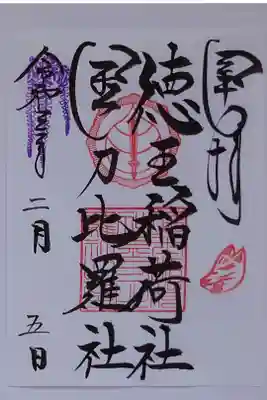 徳王稲荷社
金刀比羅社
令和三年
二月
五日